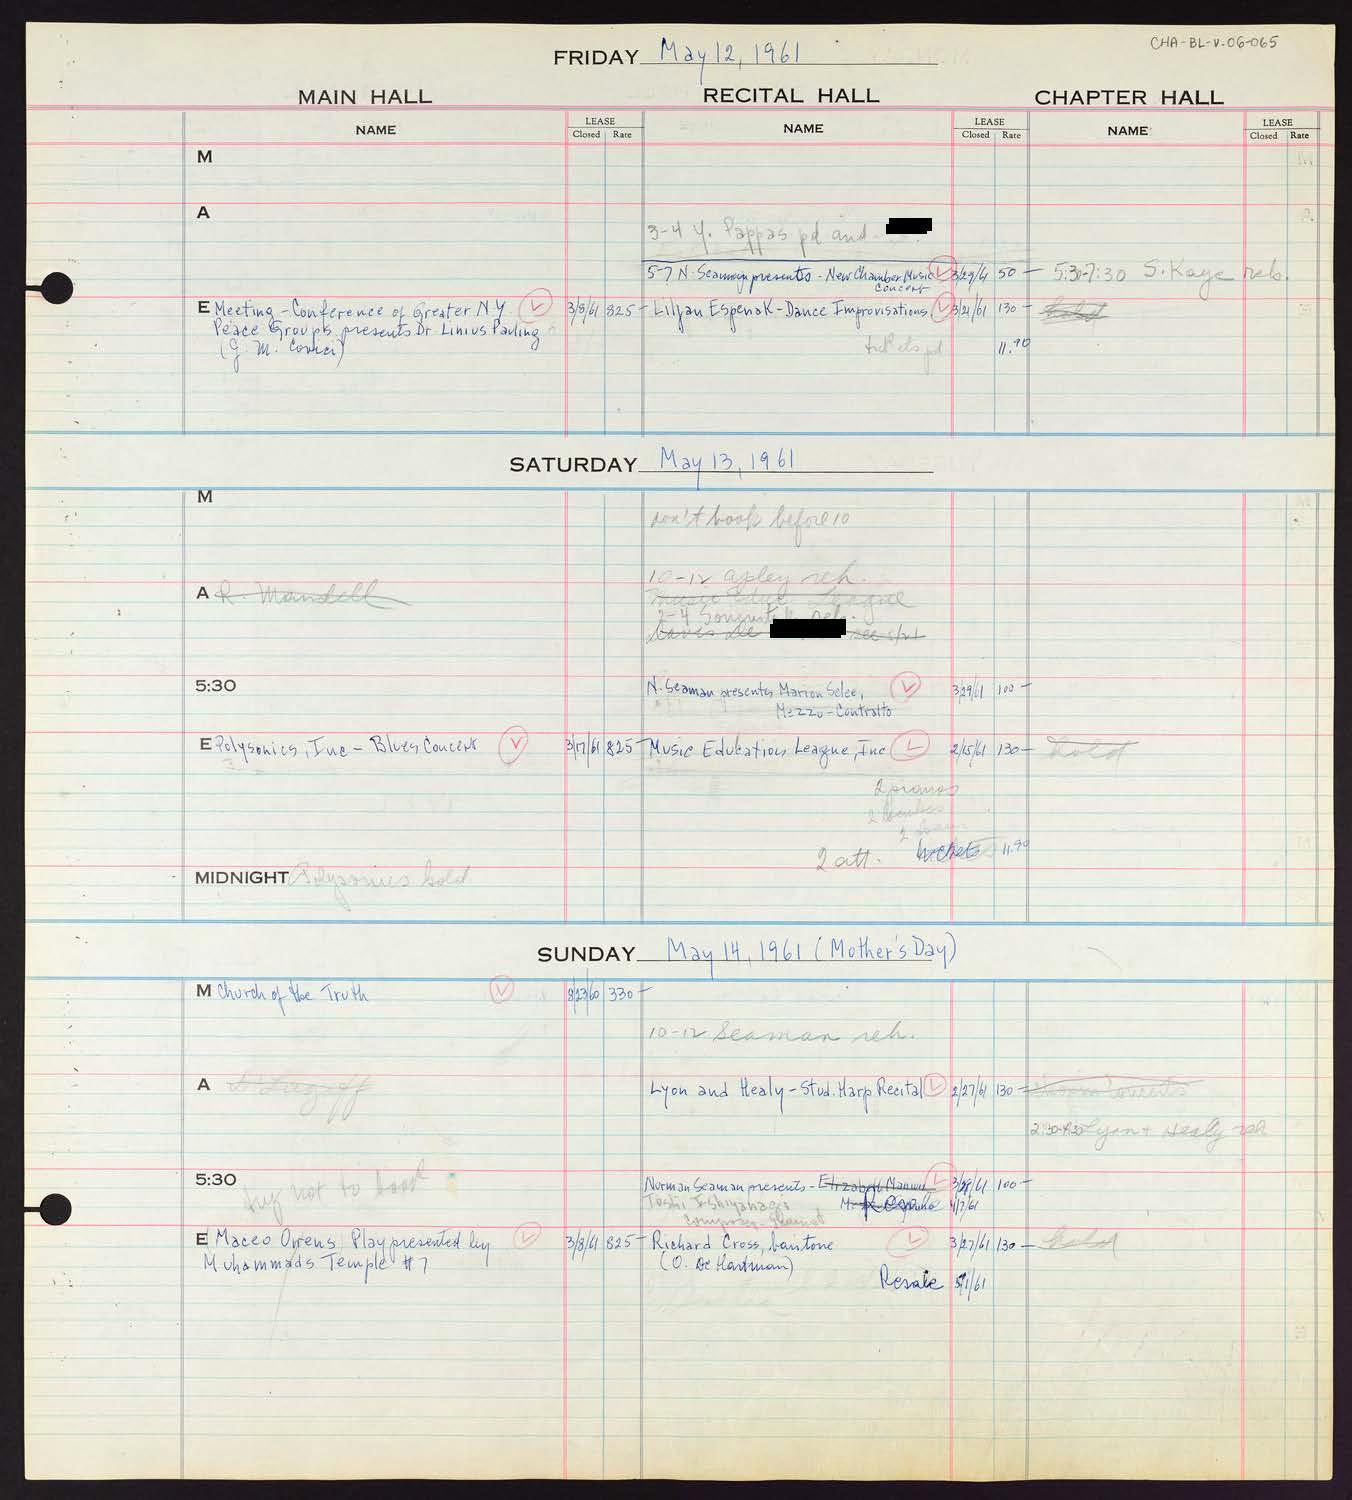 CHA-BL-V-06-065
FRIDAY May 12, 1961
MAIN HALL
RECITAL HALL
CHAPTER HALL
NAME
LEASE
Closed Rate
NAME
LEASE
Closed Rate
NAME
LEASE
Closed Rate
M
A
3-4 Y. Pappas pd and
5-7 N. Seaman presents - New Chamber Music 3/29/61 50 -
Concert
5:30-7:30 S. Kaye reh.
E Meeting - Conference of Greater N Y 3/8/61 825 -
Peace Groups presents Dr Linius Pauling
(G. M.
Liljan Espenak - Dance Improvisations 3/21/61 130 -
hold
tickets pd 11.90
SATURDAY May 13, 1961
M
don't book before 10
10-12 apley reh.
A R. Mandell
Music Educ League
2-4 reh.
5:30
N. Seaman presents Marion Selee, 3/29/61 100 -
Mezzo-Contralto
E Polysonics, Inc - Blues Concert 3/17/61 825 -
Music Education League, Inc 2/15/61 130 -
hold
2 pianos
2
2
2 att. tickets 11.90
MIDNIGHT Polysonics hold
SUNDAY May 14, 1961 (Mother's Day)
M Church of the Truth 8/23/60 330 -
10-12 Seaman reh.
A
Lyon and Healy - Stud. Harp Recital 2/27/61 130 -
Lyon + Healy reh
5:30
try not to book
Norman Seaman presents - Elizabeth 3/29/61 100 -
Toshi Ichiyanagi
composer - pianist
4/7/61
E Maceo Owens Play presented by 3/8/61 825 -
Muhammads Temple #7
Richard Cross, baritone 3/27/61 130 -
(O. De Hartman)
hold
Resale 5/1/61